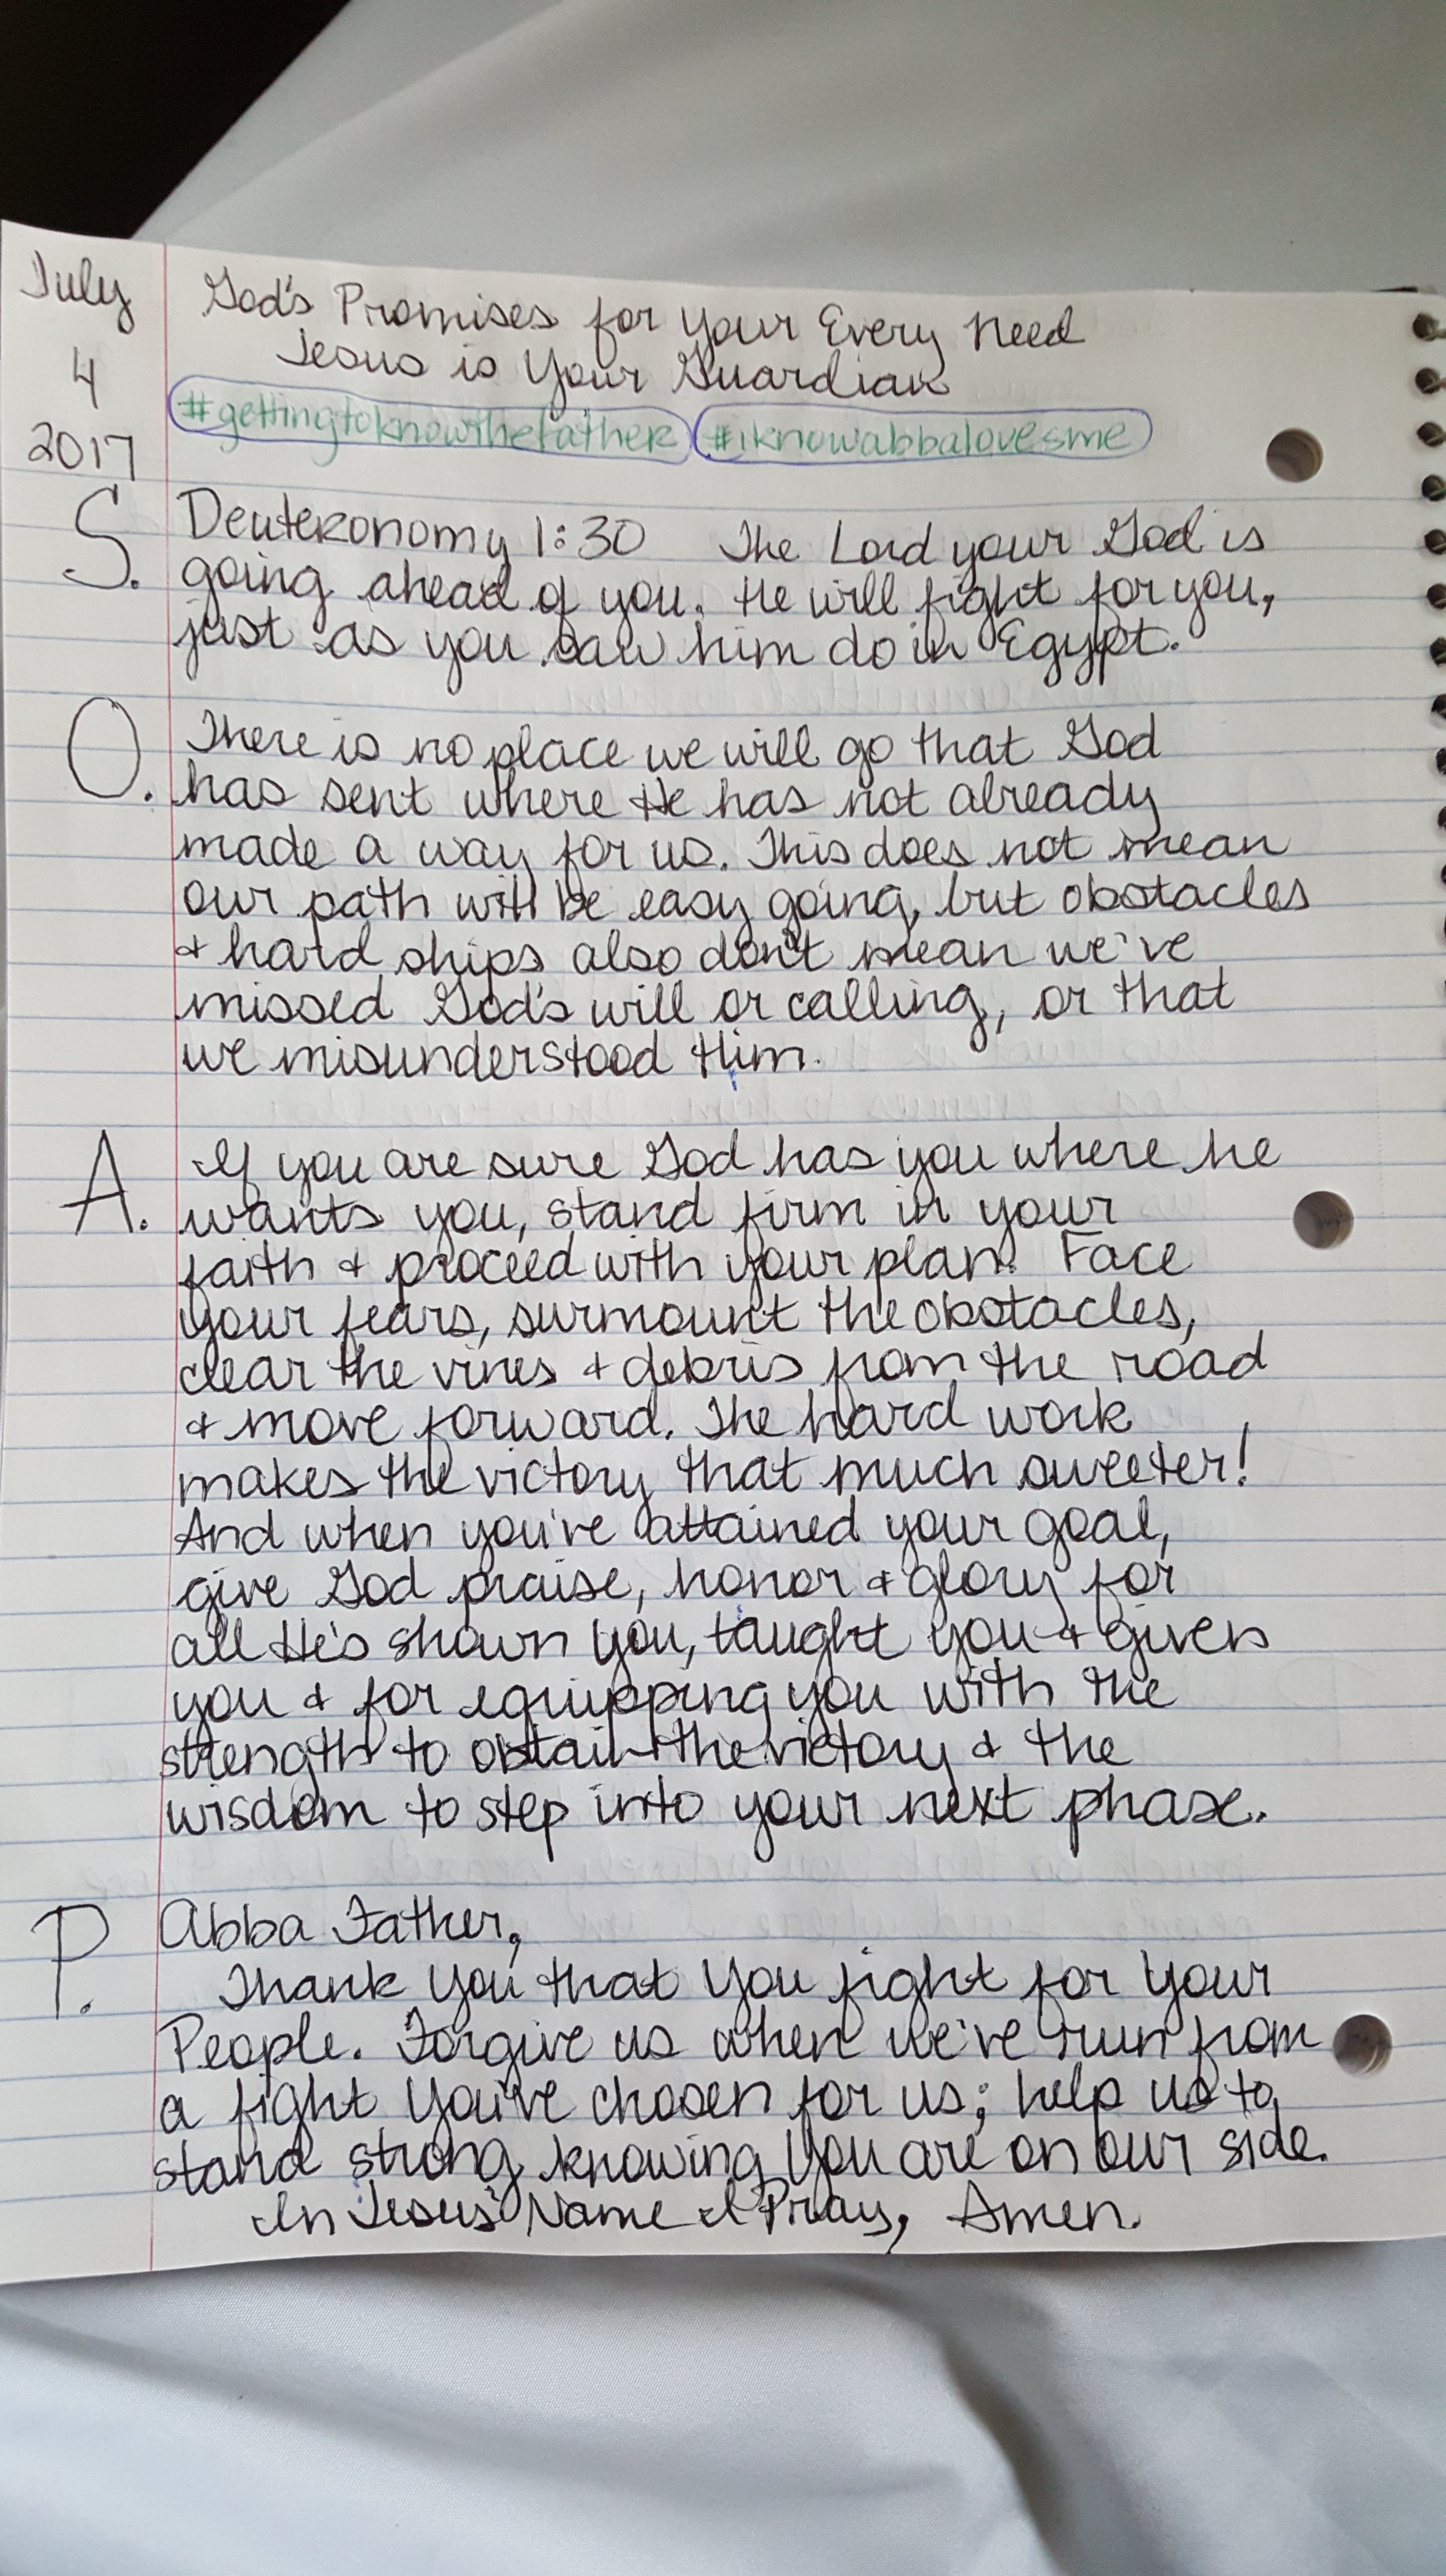 July
4
2017
God's Promises for Your Every Need
Jesus is Your Guardian
#gettingtoknowthefather #iknowabbalovesme
S. Deuteronomy 1:30 The Lord your God is
going ahead of you. He will fight for you,
just as you saw him do in Egypt.
O. There is no place we will go that God
has sent where He has not already
made a way for us. This does not mean
our path will be easy going, but obstacles
& hard ships also don't mean we've
missed God's will or calling, or that
we misunderstood Him.
A. If you are sure God has you where he
wants you, stand firm in your
faith & proceed with your plan! Face
your fears, surmount the obstacles,
clear the vines & debris from the road
& move forward. The hard work
makes the victory that much sweeter!
And when you've attained your goal,
give God praise, honor & glory for
all He's shown you, taught you & given
you & for equipping you with the
strength to obtain the victory & the
wisdom to step into your next phase.
P. Abba Father,
Thank You that You fight for Your
People. Forgive us when we've run from
a fight You've chosen for us; help us to
stand strong knowing You are on our side.
In Jesus' Name I Pray, Amen.